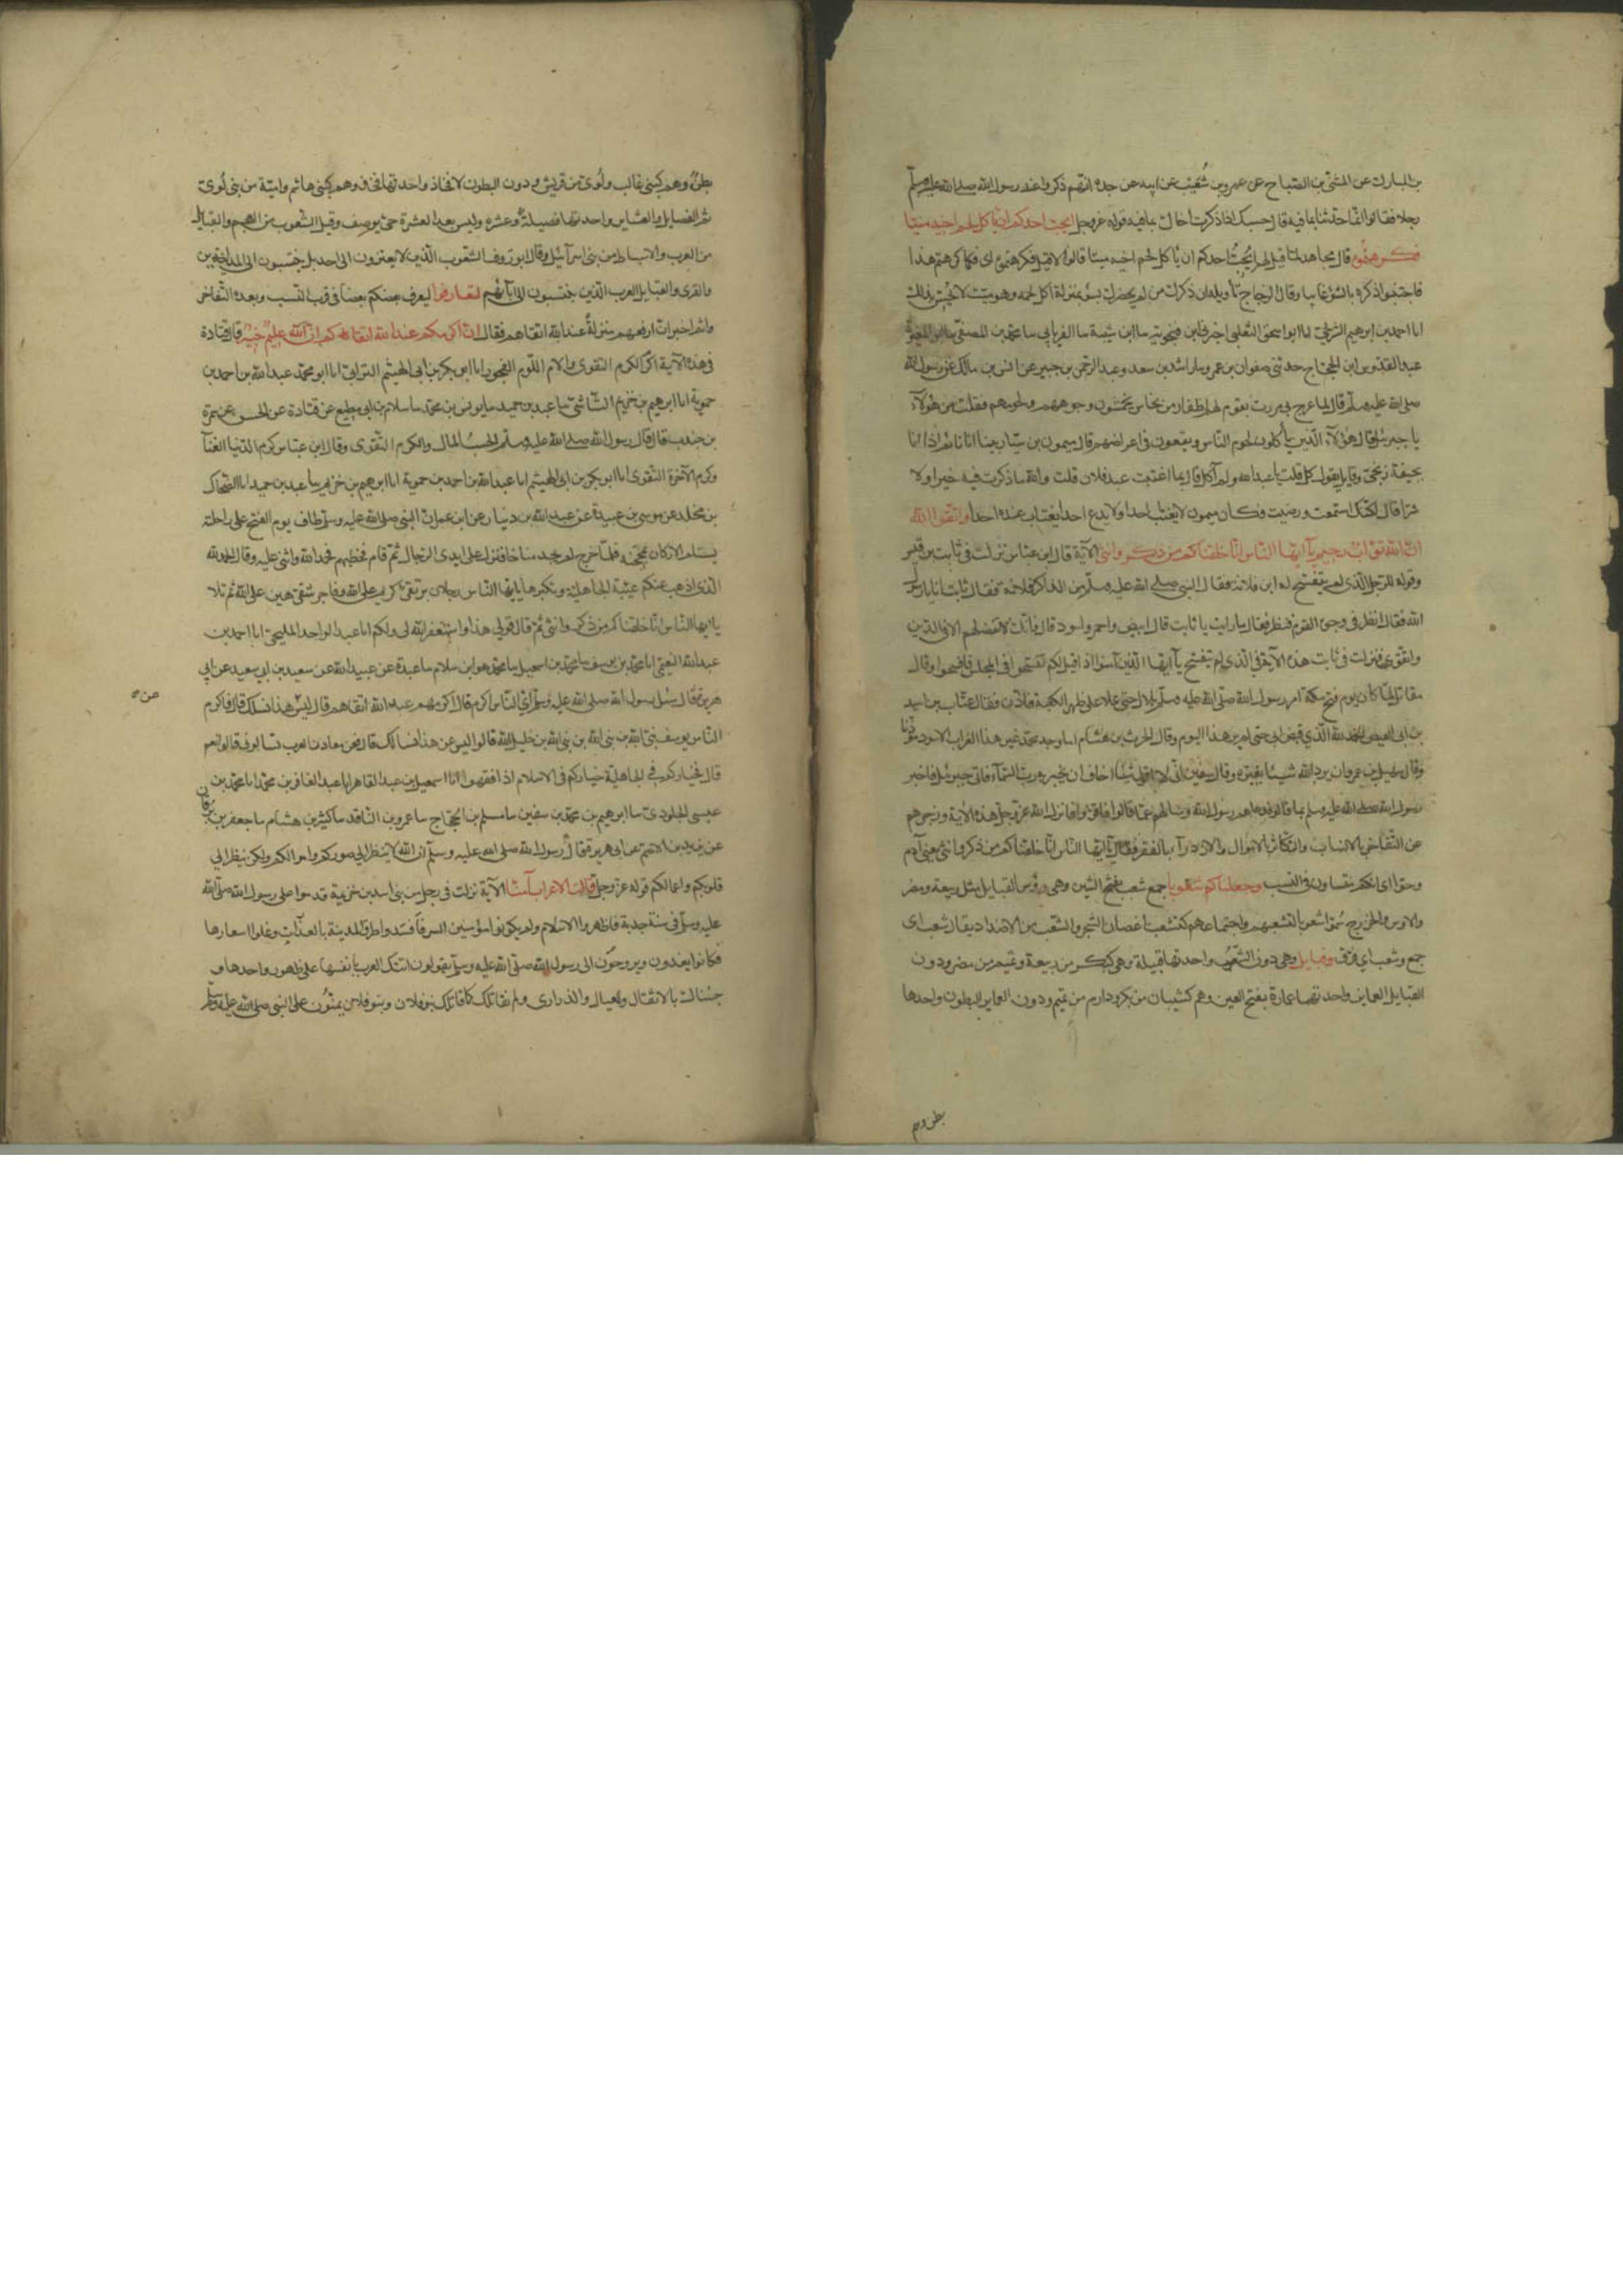 بن المبارك عن المثنى بن الصباح عن عمرو بن شعيب عن ابيه عن جده انهم ذكروا عند رسول الله صلى الله عليه وسلم
رجلا فقالوا انما حدثنا بما فيه قال حسبك اذا ذكرت اخاك بما فيه قوله عز وجل ايحب احدكم ان ياكل لحم اخيه ميتا
فكرهتموه قال مجاهد لما قيل لهم ايحب احدكم ان ياكل لحم اخيه ميتا قالوا لا قيل فكرهتموه اى فكما كرهتم هذا
فاجتنبوا ذكره بالسوء غايبا وقال الزجاج تأويله ان ذكرك من لم يحضرك بسوء بمنزلة اكل لحمه وهو ميت لا يحس بذلك
انا احمد بن ابرهيم الشريحى انا ابو اسحق الثعلبى اخبرنى ابن فنجويه سا ابن شيبة سا الفريابى سا محمد بن المصفى سا ابو المغيرة
عبد القدوس ابن الحجاج حدثنى صفوان بن عمرو سا راشد بن سعد وعبد الرحمن بن جبير عن انس بن مالك عن رسول الله
صلى الله عليه وسلم قال لما عرج بى مررت بقوم لهم اظفار من نحاس يخمشون وجوههم ولحومهم فقلت من هؤلاء
يا جبرئيل قال هؤلاء الذين يأكلون لحوم الناس ويقعون فى اعراضهم قال ميمون بن سيار بينا انا نائم اذا انا
بجيفة زنجى وقايل يقول كل قلت يا عبد الله ولم آكل قال بما اغتبت عبد فلان قلت والله ما ذكرت فيه خيرا ولا
شرا قال لكنك استمعت ورضيت فكان ميمون لا يغتاب احدا ولا يدع احدا يغتاب عنده احدا واتقوا الله
ان الله تواب رحيم يآ ايها الناس انا خلقناكم من ذكر وانثى الآية قال ابن عباس نزلت فى ثابت بن قيس
وقوله للرجل الذى لم يتفسح له ابن فلانة فقال النبى صلى الله عليه وسلم من الذاكر فلانة فقال ثابت انا يا رسول
الله فقال انظر فى وجوه القوم فنظر فقال ما رايت يا ثابت قال ابيض واحمر واسود قال فانك لا تفضلهم الا فى الدين
والتقوى فنزلت فى ثابت هذه الآية وفى الذى لم يتفسح يآ ايها الذين آمنوا اذا قيل لكم تفسحوا فى المجلس فافسحوا وقال
مقاتل لما كان يوم فتح مكة امر رسول الله صلى الله عليه وسلم بلالا حتى علا على ظهر الكعبة فاذن فقال عتاب بن اسيد
بن ابى العيص الحمد لله الذي قبض ابى حتى لم ير هذا اليوم وقال الحرث بن هشام اما وجد محمد غير هذا الغراب الاسود مؤذنا
وقال سهيل بن عمرو ان يرد الله شيئا يغيره وقال ابو سفين انى لا اقول شيئا اخاف ان يخبر به رب السمآء فاتى جبرئيل فاخبر
رسول الله صلى الله عليه وسلم بما قالوا فدعاهم رسول الله وسالهم عما قالوا فاقروا فانزل الله عز وجل هذه الآية وزجرهم
عن التفاخر بالانساب والتكاثر بالاموال والازدرآء بالفقر فقال يآ ايها الناس انا خلقناكم من ذكر وانثى يعنى آدم
وحوا اى انكم متساوون فى النسب وجعلناكم شعوبا جمع شعب بفتح الشين وهى رؤس القبايل مثل ربيعة ومضر
والاوس والخزرج سموا شعوبا لتشعبهم واجتماعهم كتشعب اغصان الشجر والشعب من الاضداد يقال شعب اى
جمع وشعب اى فرق وقبايل وهى دون الشعوب واحدتها قبيلة وهى كبكر من ربيعة وتميم من مضر ودون
القبايل العماير واحدتها عمارة بفتح العين وهم كشيبان من بكر ودارم من تميم ودون العماير البطون واحدها
بطن وهم
بطن وهم كبنى غالب ولؤى من قريش ودون البطون الافخاذ واحدتها فخذ وهم كبنى هاشم وامية من بنى لؤى
ثم الفصايل والعشاير واحدتها فصيلة وعشيرة وليس بعد العشيرة حى يوصف وقيل الشعوب من العجم والقبايل
من العرب والاسباط من بنى اسرآئيل وقال ابو روق الشعوب الذين لا يعتزون الى احد بل ينتسبون الى المداين
والقرى والقبايل العرب الذين ينتسبون الى ابآئهم لتعارفوا ليعرف بعضكم بعضا فى قرب النسب وبعده لا لتفاخروا
ثم اخبر ان ارفعهم منزلة عند الله اتقاهم فقال ان اكرمكم عند الله اتقاكم ان الله عليم خبير قال قتادة
فى هذه الآية اكرم الكرم التقوى والام اللوم الفجور انا ابو بكر بن ابى الهيثم الترابى انا ابو محمد عبد الله بن احمد بن
حموية انا ابرهيم بن خزيم الشاشى سا عبد بن حميد سا يونس بن محمد سا سلام بن ابى مطيع عن قتادة عن الحسن عن سمرة
بن جندب قال قال رسول الله صلى الله عليه وسلم الحسب المال والكرم التقوى وقال ابن عباس كرم الدنيا الغنآ
وكرم الآخرة التقوى انا ابو بكر بن ابى الهيثم انا عبد الله بن احمد بن حموية انا ابرهيم بن خزيم سا عبد بن حميد انا الضحاك
بن مخلد عن موسى بن عبيدة عن عبد الله بن دينار عن ابن عمر ان النبى صلى الله عليه وسلم طاف يوم الفتح على راحلته
يستلم الاركان بمحجنه فلما خرج لم يجد مناخا فنزل على ايدى الرجال ثم قام فخطبهم فحمد الله واثنى عليه وقال الحمد لله
الذى اذهب عنكم عيبة الجاهلية وتكبرها يا ايها الناس رجلان بر تقى كريم على الله وفاجر شقى هين على الله ثم تلا
يا ايها الناس انا خلقناكم من ذكر وانثى ثم قال اقول قولى هذا واستغفر الله لى ولكم انا عبد الواحد المليحى انا احمد بن
عبد الله النعيمى انا محمد بن يوسف سا محمد بن اسمعيل سا محمد هو ابن سلام سا عبدة عن عبيد الله عن سعيد بن ابى سعيد عن ابى
هريرة قال سئل رسول الله صلى الله عليه وسلم اى الناس اكرم قال اكرمهم عند الله اتقاهم قال ليس عن هذا نسالك قال فاكرم
الناس يوسف نبى الله بن نبى الله بن خليل الله قالوا ليس عن هذا نسالك قال فعن معادن العرب تسالونى قالوا نعم
قال فخياركم فى الجاهلية خياركم فى الاسلام اذا فقهوا انا اسمعيل بن عبد القاهر انا عبد الغافر بن محمد انا محمد بن
عيسى الجلودى سا ابرهيم بن محمد بن سفين سا مسلم بن الحجاج سا عمرو بن الناقد سا كثير بن هشام سا جعفر بن برقان
عن يزيد بن الاصم عن ابى هريرة قال قال رسول الله صلى الله عليه وسلم ان الله لا ينظر الى صوركم واموالكم ولكن ينظر الى
قلوبكم واعمالكم قوله عز وجل قالت الاعراب آمنا الآية نزلت فى رجل من بنى اسد بن خزيمة قدموا على رسول الله صلى الله
عليه وسلم فى سنة جدبة فاظهروا الاسلام ولم يكونوا مؤمنين السر فافسدوا طرق المدينة بالعذرات وغلوا اسعارها
فكانوا يغدون ويروحون الى رسول الله صلى الله عليه وسلم يقولون اتتك العرب بانفسها على ظهور رواحلها و
جئناك بالاثقال والعيال والذرارى ولم نقاتلك كما قاتلك بنو فلان وبنو فلان يمنون على النبى صلى الله عليه وسلم